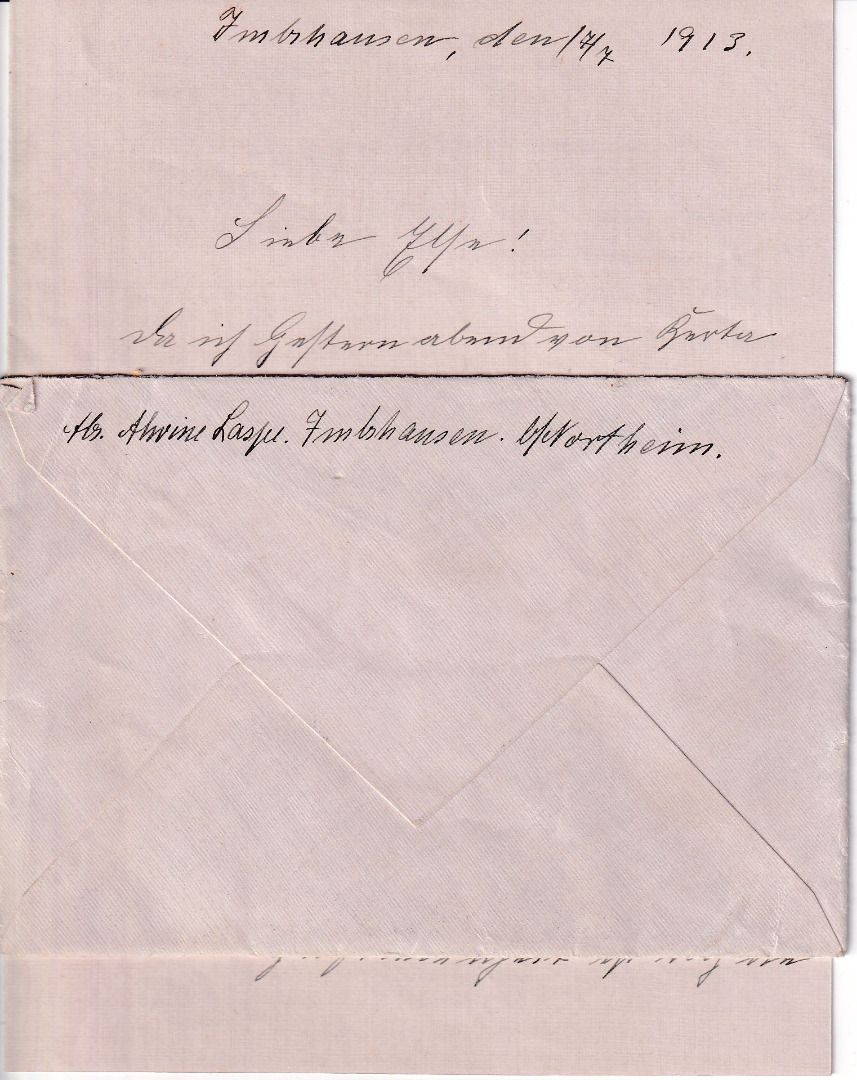 Imbshausen, den 17/7 1913.
Liebe Else!
Da ich Gestern abend von Herta
Abs. Alwine Laspe. Imbshausen. b/Northeim.